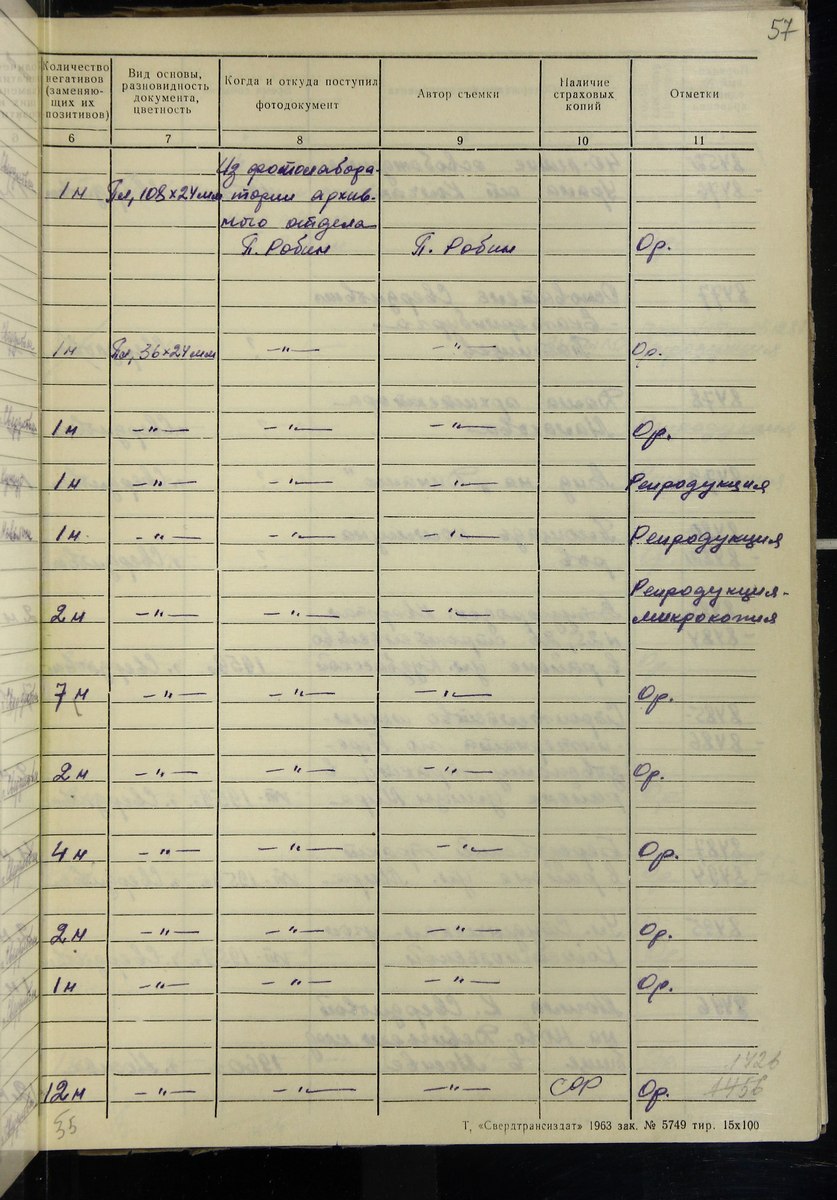 57
Количество негативов (заменяю- щих их позитивов)
Вид основы, разновидность документа, цветность
Когда и откуда поступил фотодокумент
Автор съемки
Наличие страховых копий
Отметки
6 7 8 9 10 11
Из фотолабора-
1 н Пл, 108×24мм тории архив-
ного отдела
П. Робин П. Робин Ор.
1 н Пл, 36×24мм -"- -"- Ор.
1 н -"- -"- -"- Ор.
1 н -"- -"- -"- Репродукция
1 н. -"- -"- -"- Репродукция
Репродукция-
2 н -"- -"- -"- микрокопия
7 н -"- -"- -"- Ор.
2 н -"- -"- -"- Ор.
4 н -"- -"- -"- Ор.
2 н -"- -"- -"- Ор.
1 н -"- -"- -"- Ор.
1426
12 н -"- -"- -"- Ор. 1456
35
Т, «Свердтрансиздат» 1963 зак. № 5749 тир. 15х100